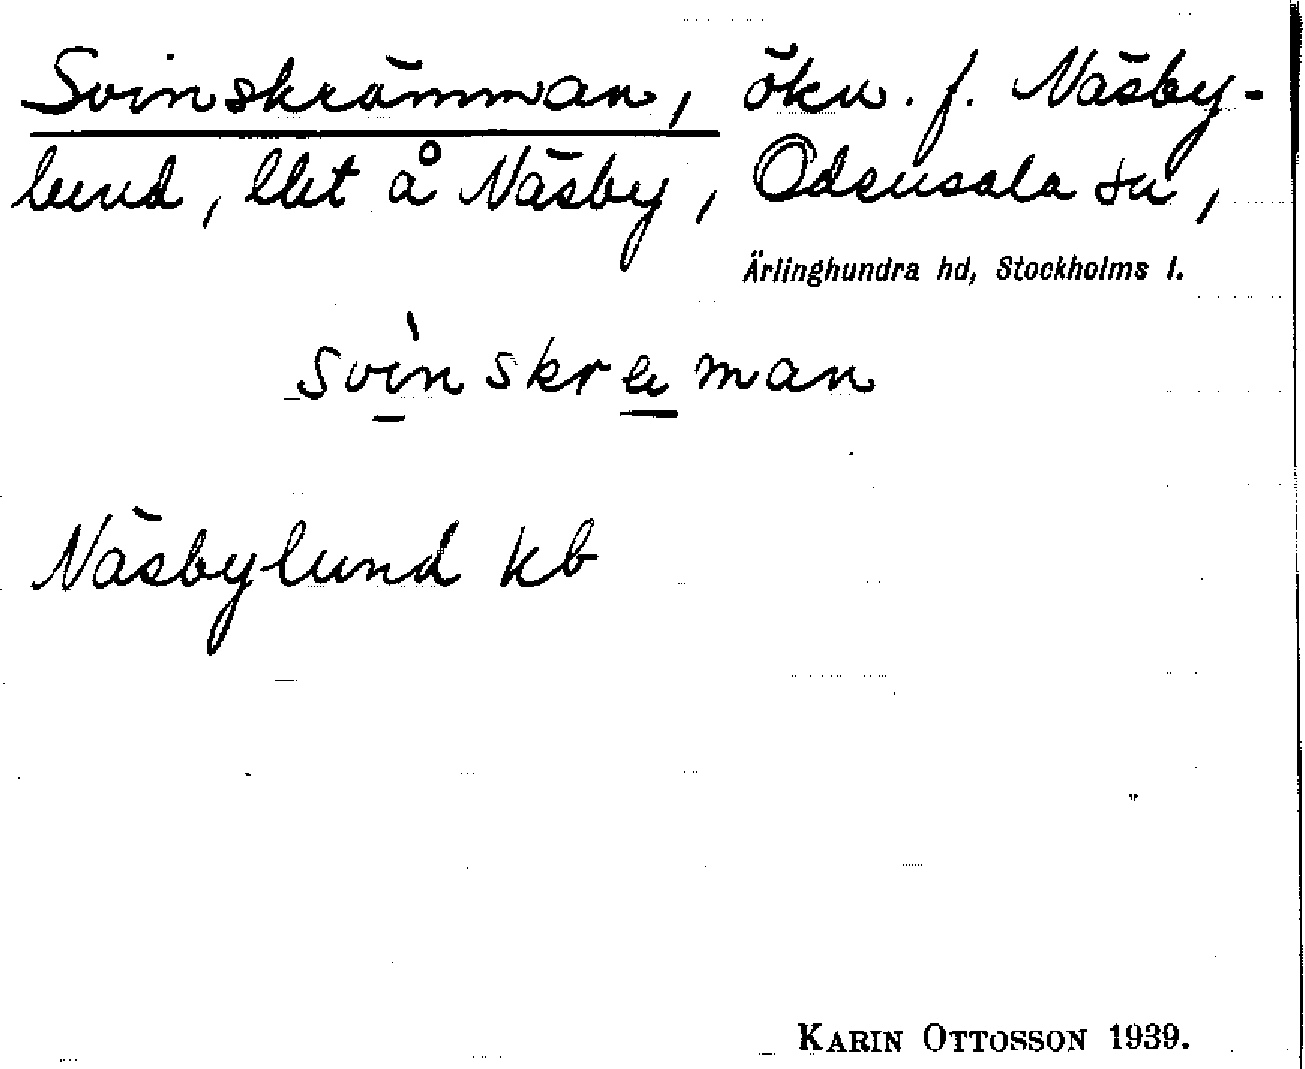 Svinskrämman, ökn. f. Näsby-
lund, lht å Näsby, Odensala sn,
Ärlinghundra hd, Stockholms l.
svìnskræman
Näsbylund kb
KARIN OTTOSSON 1939.